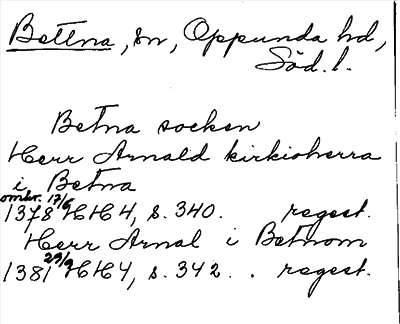 Bettna, sn, Oppunda hd,
Söd. l.
Betna socken
Herr Arnald kirkioherra
i Betna
omkr. 17/6
1378 HH 4, s. 340. regest.
Herr Arnal i Betnom
1381 29/9 HH 4, s. 342. . regest.